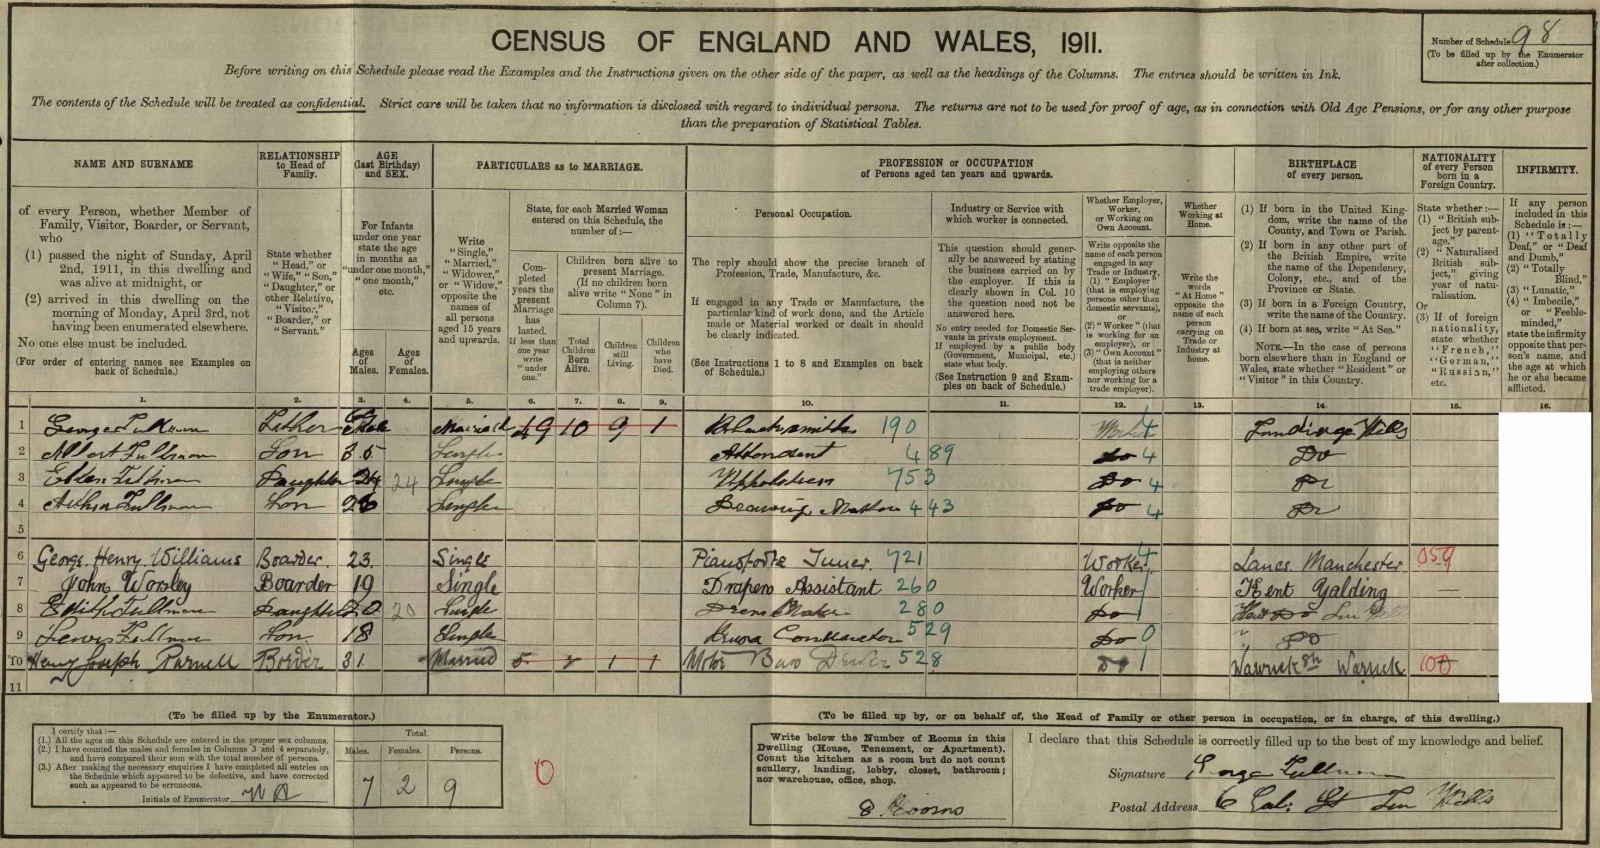 CENSUS OF ENGLAND AND WALES, 1911.
Number of Schedule 98
(To be filled up by the Enumerator after collection.)
Before writing on this Schedule please read the Examples and the Instructions given on the other side of the paper, as well as the headings of the Columns. The entries should be written in Ink.
The contents of the Schedule will be treated as confidential. Strict care will be taken that no information is disclosed with regard to individual persons. The returns are not to be used for proof of age, as in connection with Old Age Pensions, or for any other purpose
than the preparation of Statistical Tables.
NAME AND SURNAME
of every Person, whether Member of Family, Visitor, Boarder, or Servant, who
(1) passed the night of Sunday, April 2nd, 1911, in this dwelling and was alive at midnight, or
(2) arrived in this dwelling on the morning of Monday, April 3rd, not having been enumerated elsewhere.
No one else must be included.
(For order of entering names see Examples on back of Schedule.)
RELATIONSHIP to Head of Family.
State whether "Head," or "Wife," "Son," "Daughter," or other Relative, "Visitor," "Boarder," or "Servant."
AGE (last Birthday) and SEX.
For Infants under one year state the age in months as "under one month," "one month," etc.
Ages of Males.
Ages of Females.
PARTICULARS as to MARRIAGE.
Write "Single," "Married," "Widower," or "Widow," opposite the names of all persons aged 15 years and upwards.
State, for each Married Woman entered on this Schedule, the number of:—
Completed years the present Marriage has lasted. If less than one year write "under one."
Children born alive to present Marriage. (If no children born alive write "None" in Column 7).
Total Children Born Alive.
Children still Living.
Children who have Died.
PROFESSION or OCCUPATION of Persons aged ten years and upwards.
Personal Occupation.
The reply should show the precise branch of Profession, Trade, Manufacture, &c.
If engaged in any Trade or Manufacture, the particular kind of work done, and the Article made or Material worked or dealt in should be clearly indicated.
(See Instructions 1 to 8 and Examples on back of Schedule.)
Industry or Service with which worker is connected.
This question should generally be answered by stating the business carried on by the employer. If this is clearly shown in Col. 10 the question need not be answered here.
No entry needed for Domestic Servants in private employment. If employed by a public body (Government, Municipal, etc.) state what body.
(See Instruction 9 and Examples on back of Schedule.)
Whether Employer, Worker, or Working on Own Account.
Write opposite the name of each person engaged in any Trade or Industry, (1) "Employer" (that is employing persons other than domestic servants), or (2) "Worker" (that is working for an employer), or (3) "Own Account" (that is neither employing others nor working for a trade employer).
Whether Working at Home.
Write the words "At Home" opposite the name of each person carrying on Trade or Industry at home.
BIRTHPLACE of every person.
(1) If born in the United Kingdom, write the name of the County, and Town or Parish.
(2) If born in any other part of the British Empire, write the name of the Dependency, Colony, etc., and of the Province or State.
(3) If born in a Foreign Country, write the name of the Country.
(4) If born at sea, write "At Sea."
NOTE.—In the case of persons born elsewhere than in England or Wales, state whether "Resident" or "Visitor" in this Country.
NATIONALITY of every Person born in a Foreign Country.
State whether:— (1) "British subject by parentage." (2) "Naturalised British subject," giving year of naturalisation. Or (3) If of foreign nationality, state whether "French," "German," "Russian," etc.
INFIRMITY.
If any person included in this Schedule is:— (1) "Totally Deaf," or "Deaf and Dumb," (2) "Totally Blind," (3) "Lunatic," (4) "Imbecile," or "Feeble-minded," state the infirmity opposite that person's name, and the age at which he or she became afflicted.
1. 2. 3. 4. 5. 6. 7. 8. 9. 10. 11. 12. 13. 14. 15. 16.
1 George Fullman Father Married 49 10 9 1 Blacksmith 190 4
2 Albert Fullman Son 35 Single Attendant 489 Do 4 Do
3 Fullman Daughter 24 24 Single 753 Do 4 Do
4 Arthur Fullman Son 26 Single 443 Do 4 Do
5
6 George Henry Williams Boarder 23 Single Pianoforte Tuner 721 Worker Lancs. Manchester 059
7 John Worsley Boarder 19 Single Drapers Assistant 260 Worker Kent Yalding —
8 Edith Fullman Daughter 20 20 Single Dress Maker 280 Do Do
9 Lewis Fullman Son 18 Single Conductor 529 Do 0 " Do
10 Henry Joseph Parnell Border 31 Married 5 2 1 1 Motor Bus Driver 528 Do 1 Warwick
11
(To be filled up by the Enumerator.)
I certify that:—
(1.) All the ages on this Schedule are entered in the proper sex columns.
(2.) I have counted the males and females in Columns 3 and 4 separately, and have compared their sum with the total number of persons.
(3.) After making the necessary enquiries I have completed all entries on the Schedule which appeared to be defective, and have corrected such as appeared to be erroneous.
Initials of Enumerator
Total.
Males. Females. Persons.
7 2 9
0
(To be filled up by, or on behalf of, the Head of Family or other person in occupation, or in charge, of this dwelling.)
Write below the Number of Rooms in this Dwelling (House, Tenement, or Apartment). Count the kitchen as a room but do not count scullery, landing, lobby, closet, bathroom; nor warehouse, office, shop.
8 Rooms
I declare that this Schedule is correctly filled up to the best of my knowledge and belief.
Signature George Fullman
Postal Address 6 St Tun Wells